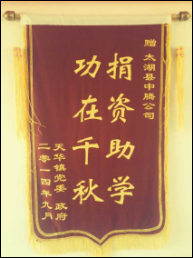 赠 太湖县申腾公司
捐资助学
功在千秋
天华镇党委 政府
二零一四年九月